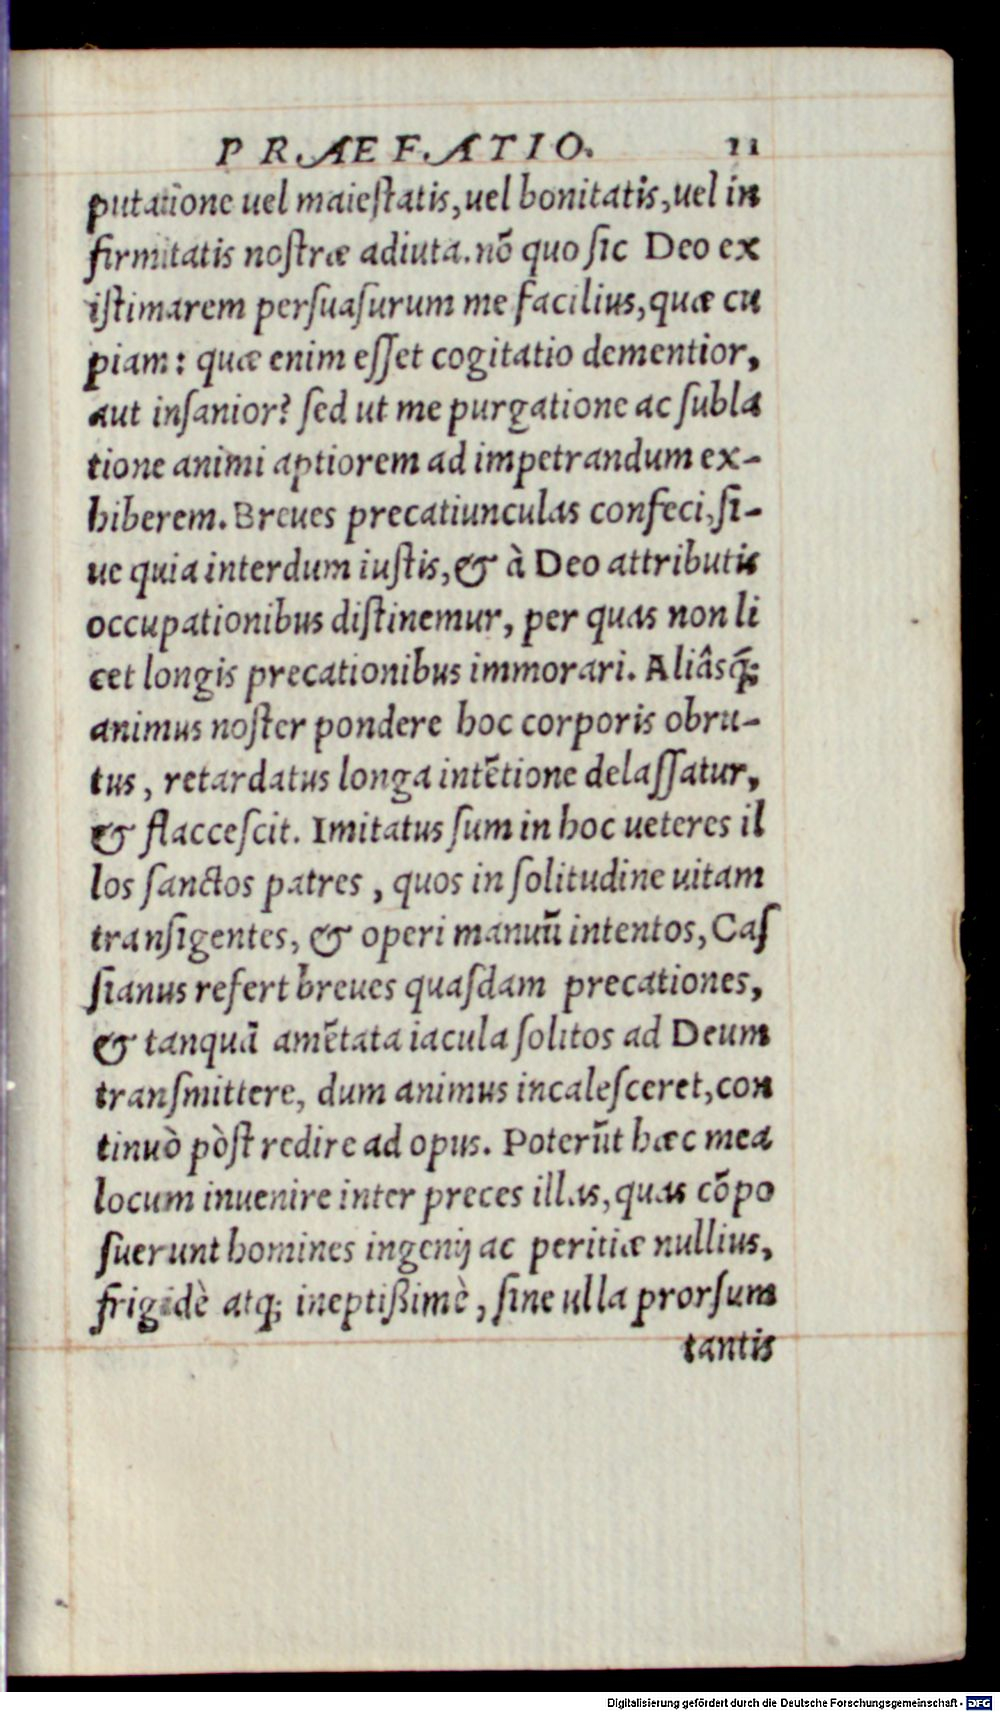 PRAEFATIO. 11
putatione uel maieſtatis, uel bonitatis, uel in
firmitatis noſtræ adiuta. nõ quo ſic Deo ex
iſtimarem perſuaſurum me facilius, quæ cu
piam: quæ enim eſſet cogitatio dementior,
aut inſanior? ſed ut me purgatione ac ſubla
tione animi aptiorem ad impetrandum ex-
hiberem. Breues precatiunculas confeci, ſi-
ue quia interdum iuſtis, & à Deo attributis
occupationibus diſtinemur, per quas non li
cet longis precationibus immorari. Aliâsq́;
animus noſter pondere hoc corporis obru-
tus, retardatus longa intẽtione delaſſatur,
& flacceſcit. Imitatus ſum in hoc ueteres il
los ſanctos patres, quos in ſolitudine uitam
tranſigentes, & operi manuũ intentos, Caſ
ſianus refert breues quaſdam precationes,
& tanquã amẽtata iacula ſolitos ad Deum
tranſmittere, dum animus incaleſceret, con
tinuò pòſt redire ad opus. Poterũt hæc mea
locum inuenire inter preces illas, quas cõpo
ſuerunt homines ingenij ac peritiæ nullius,
frigidè atq; ineptißimè, ſine ulla prorſum
tantis
Digitalisierung gefördert durch die Deutsche Forschungsgemeinschaft - DFG